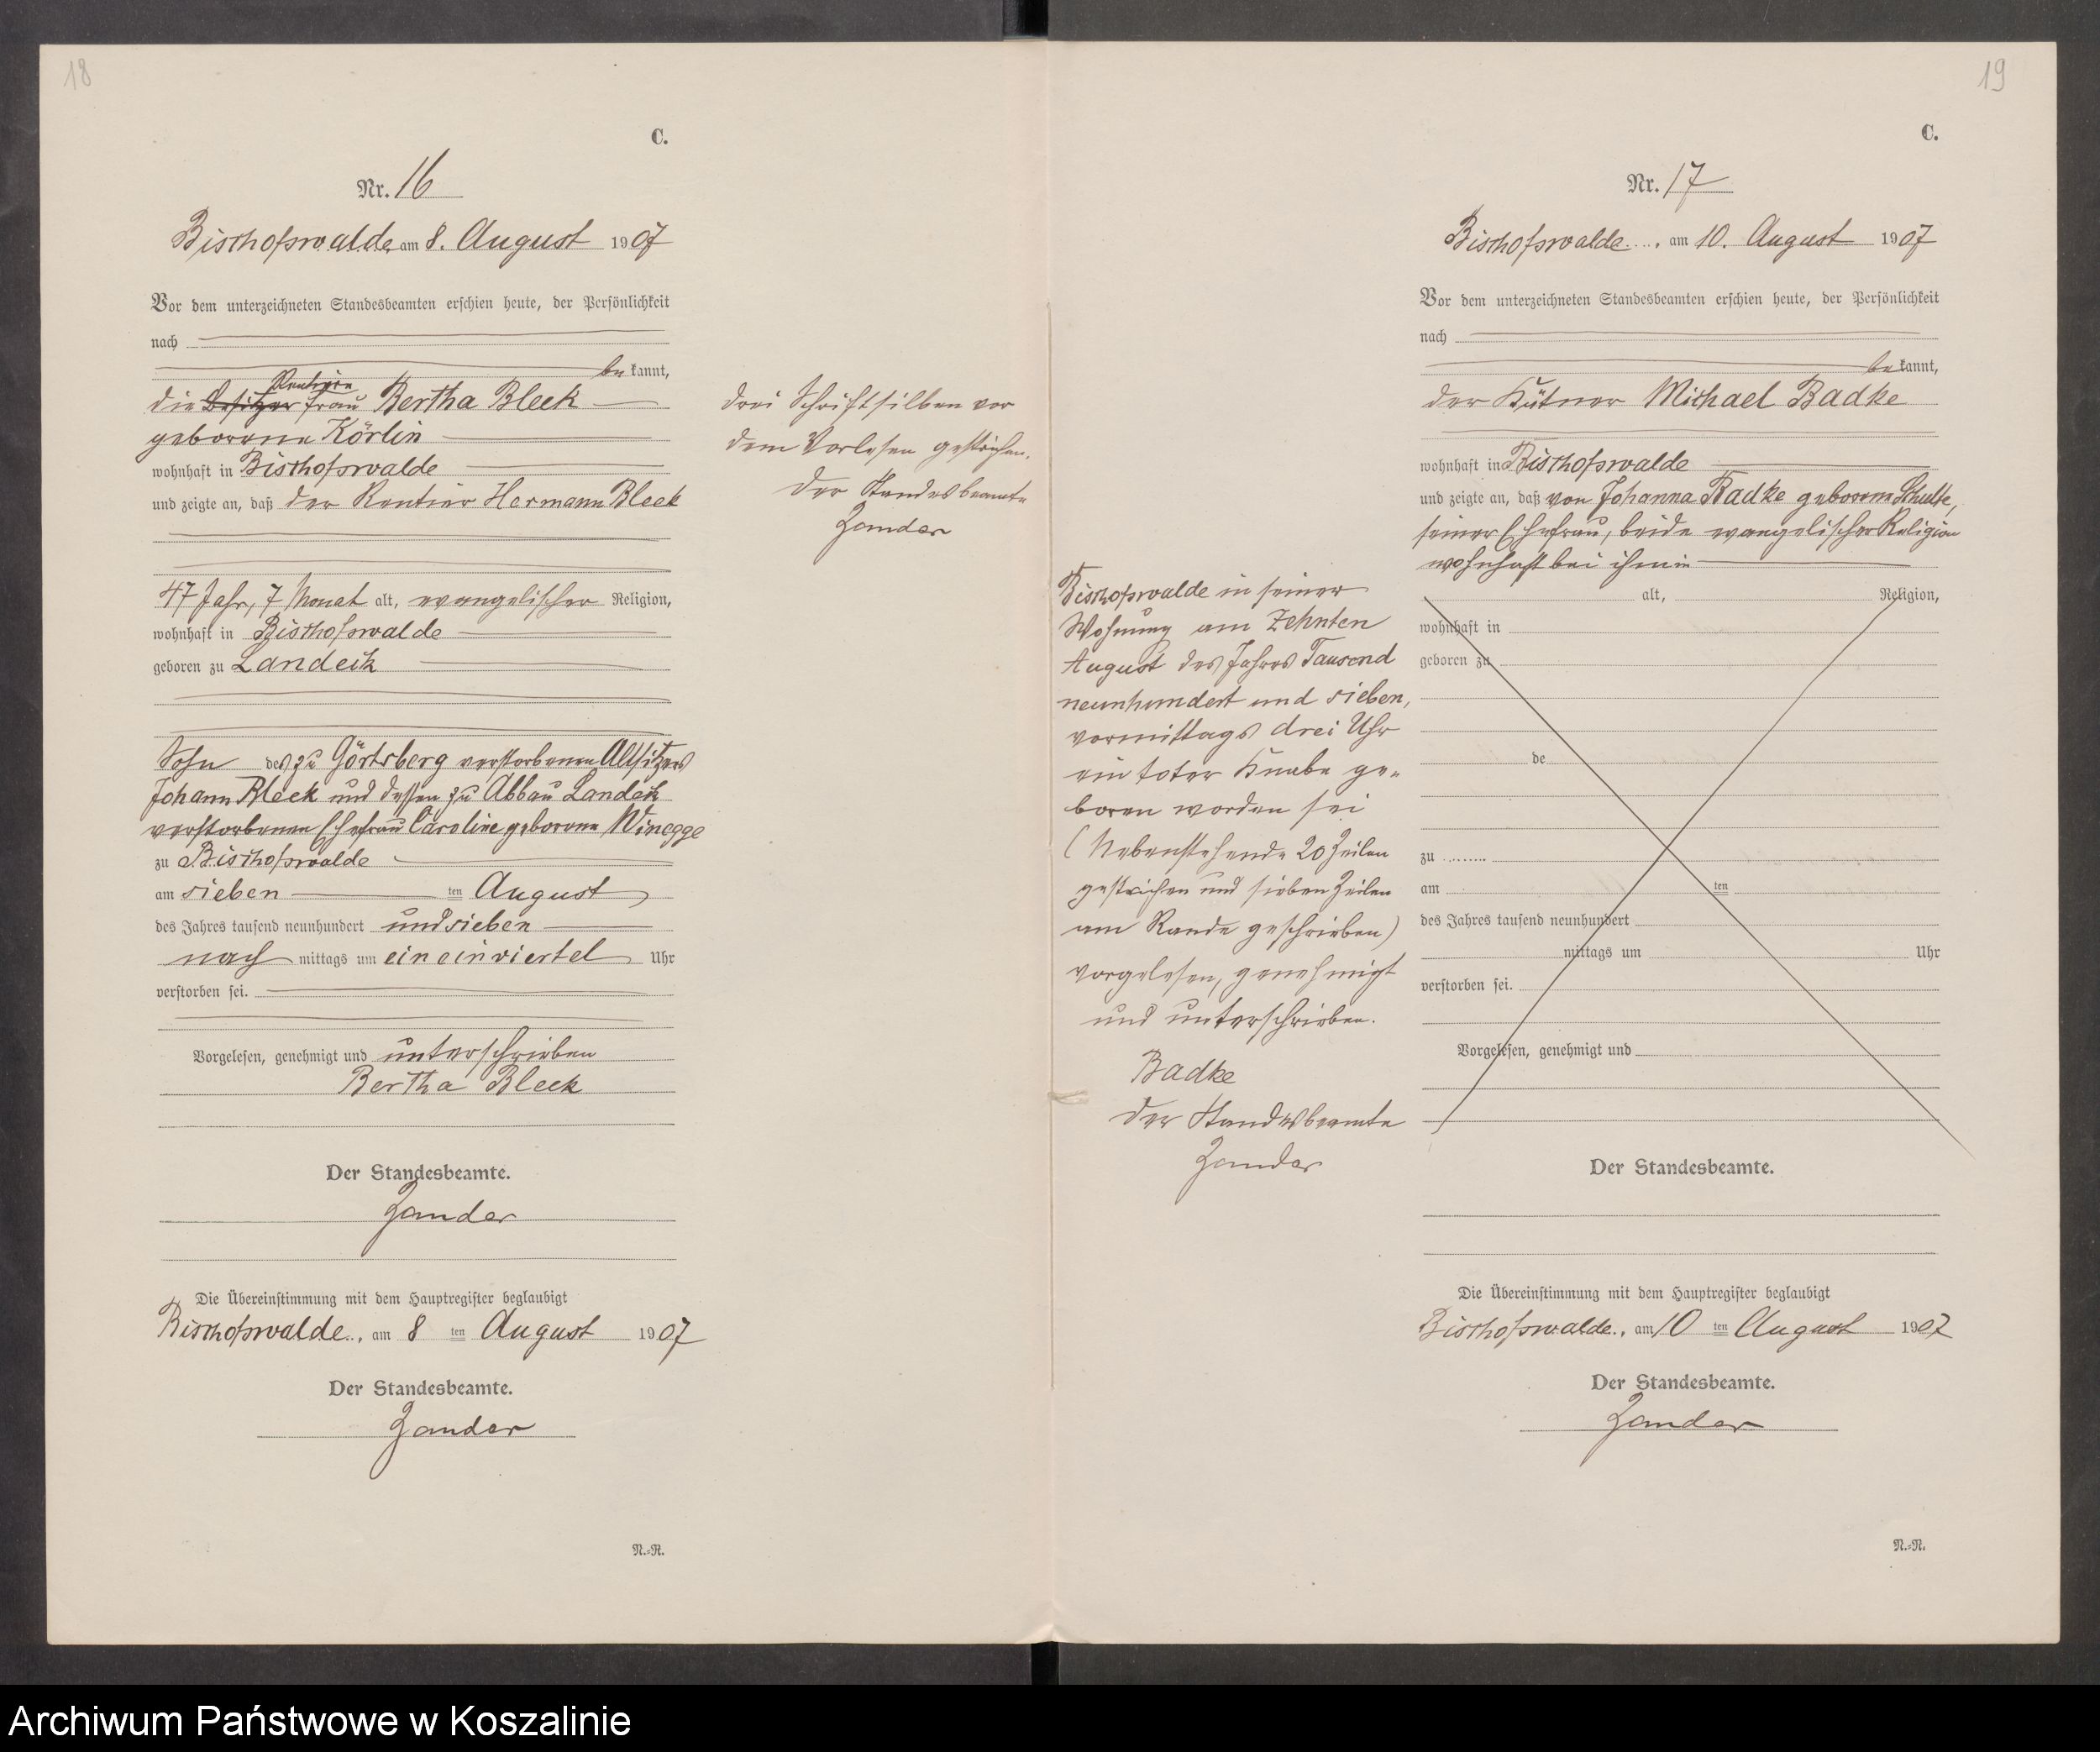 18
C.
Nr. 16
Bischofswalde am 8. August 1907
Vor dem unterzeichneten Standesbeamten erschien heute, der Persönlichkeit
nach
be kannt,
Rentiere
die Besitzer frau Bertha Bleek
geborene Körlin
wohnhaft in Bischofswalde
und zeigte an, daß der Rentier Hermann Bleek
47 Jahr, 7 Monat alt, evangelischer Religion,
wohnhaft in Bischofswalde
geboren zu Landeck
Sohn des zu Görtsberg verstorbenen Altsitzers
Johann Bleek und dessen zu Abbau Landeck
verstorbenen Ehefrau Caroline geborene Winegge
zu Bischofswalde
am sieben ten August
des Jahres tausend neunhundert und sieben
nach mittags um ein einviertel Uhr
verstorben sei.
Vorgelesen, genehmigt und unterschrieben
Bertha Bleek
Der Standesbeamte.
Zander
Die Übereinstimmung mit dem Hauptregister beglaubigt
Bischofswalde., am 8 ten August 1907
Der Standesbeamte.
Zander
N.=R.
Drei Schriftsilben vor
dem Vorlesen gestrichen.
Der Standesbeamte
Zander
19
C.
Nr. 17
Bischofswalde...., am 10. August 1907
Vor dem unterzeichneten Standesbeamten erschien heute, der Persönlichkeit
nach
be kannt,
der Kätner Michael Badke
wohnhaft in Bischofswalde
und zeigte an, daß von Johanna Badke geborene Schulte,
seiner Ehefrau, beide evangelischer Religion
wohnhaft bei ihm in
Bischofswalde in seiner
Wohnung am Zehnten
August des Jahres Tausend
neunhundert und sieben,
vormittags drei Uhr
ein toter Knabe ge-
boren worden sei
(Nebenstehende 20 Zeilen
gestrichen und sieben Zeilen
am Rande geschrieben)
vorgelesen, genehmigt
und unterschrieben.
Badke
Der Standesbeamte
Zander
alt, Religion,
wohnhaft in
geboren zu
de
zu ........
am ten
des Jahres tausend neunhundert
mittags um Uhr
verstorben sei.
Vorgelesen, genehmigt und
Der Standesbeamte.
Die Übereinstimmung mit dem Hauptregister beglaubigt
Bischofswalde., am 10 ten August 1907
Der Standesbeamte.
Zander
N.=R.
Archiwum Państwowe w Koszalinie